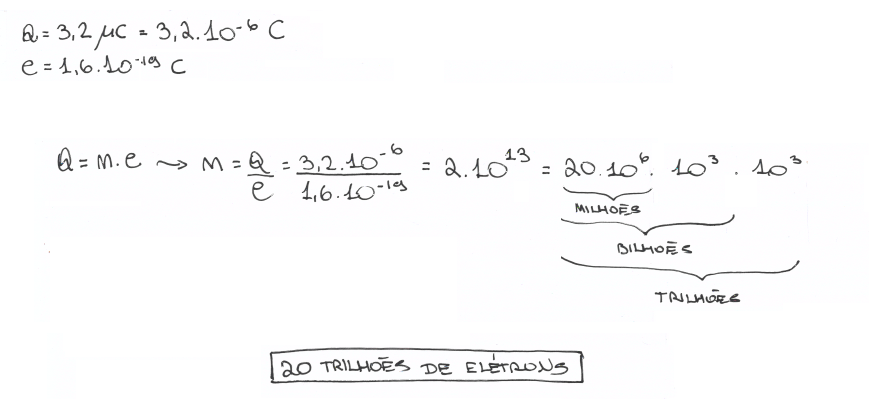 Q = 3,2 μC = 3,2.10⁻⁶ C
e = 1,6.10⁻¹⁹ C
Q = m.e → m = Q/e = 3,2.10⁻⁶/1,6.10⁻¹⁹ = 2.10¹³ = 20.10⁶. 10³. 10³
MILHOẼS
BILHOẼS
TRILHOẼS
20 TRILHOẼS DE ELÉTRONS